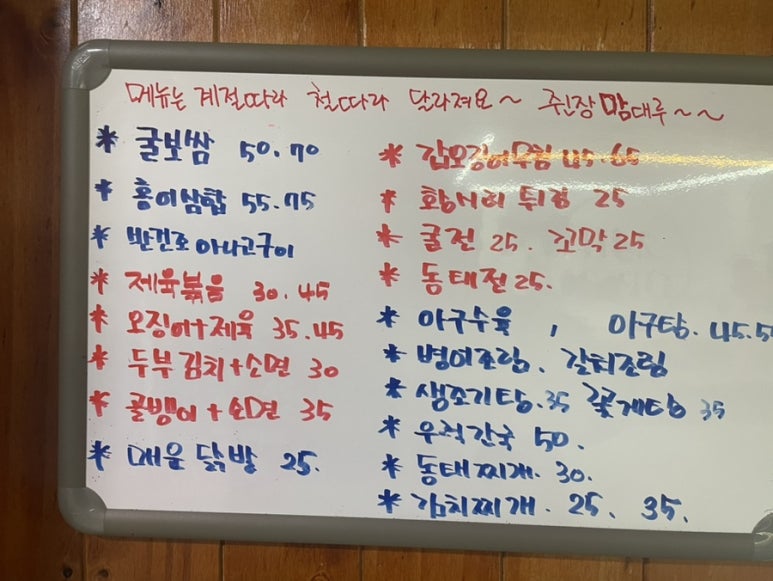 메뉴는 계절따라 철따라 달라져요~ 쥔장 맘대루~~
* 굴보쌈 50.70
* 홍어삼합 55.75
* 반건조 아나고구이
* 제육볶음 30.45
* 오징어+제육 35.45
* 두부김치+소면 30
* 골뱅이+소면 35
* 매운 닭발 25.
* 갑오징어무침 45.65
* 황석어 튀김 25
* 굴전 25. 꼬막 25
* 동태전 25.
* 아구수육, 아구탕. 45.5
* 병어조림. 갈치조림
* 생조기탕. 35 꽃게탕 35
* 우럭간국 50.
* 동태찌개. 30.
* 김치찌개. 25. 35.